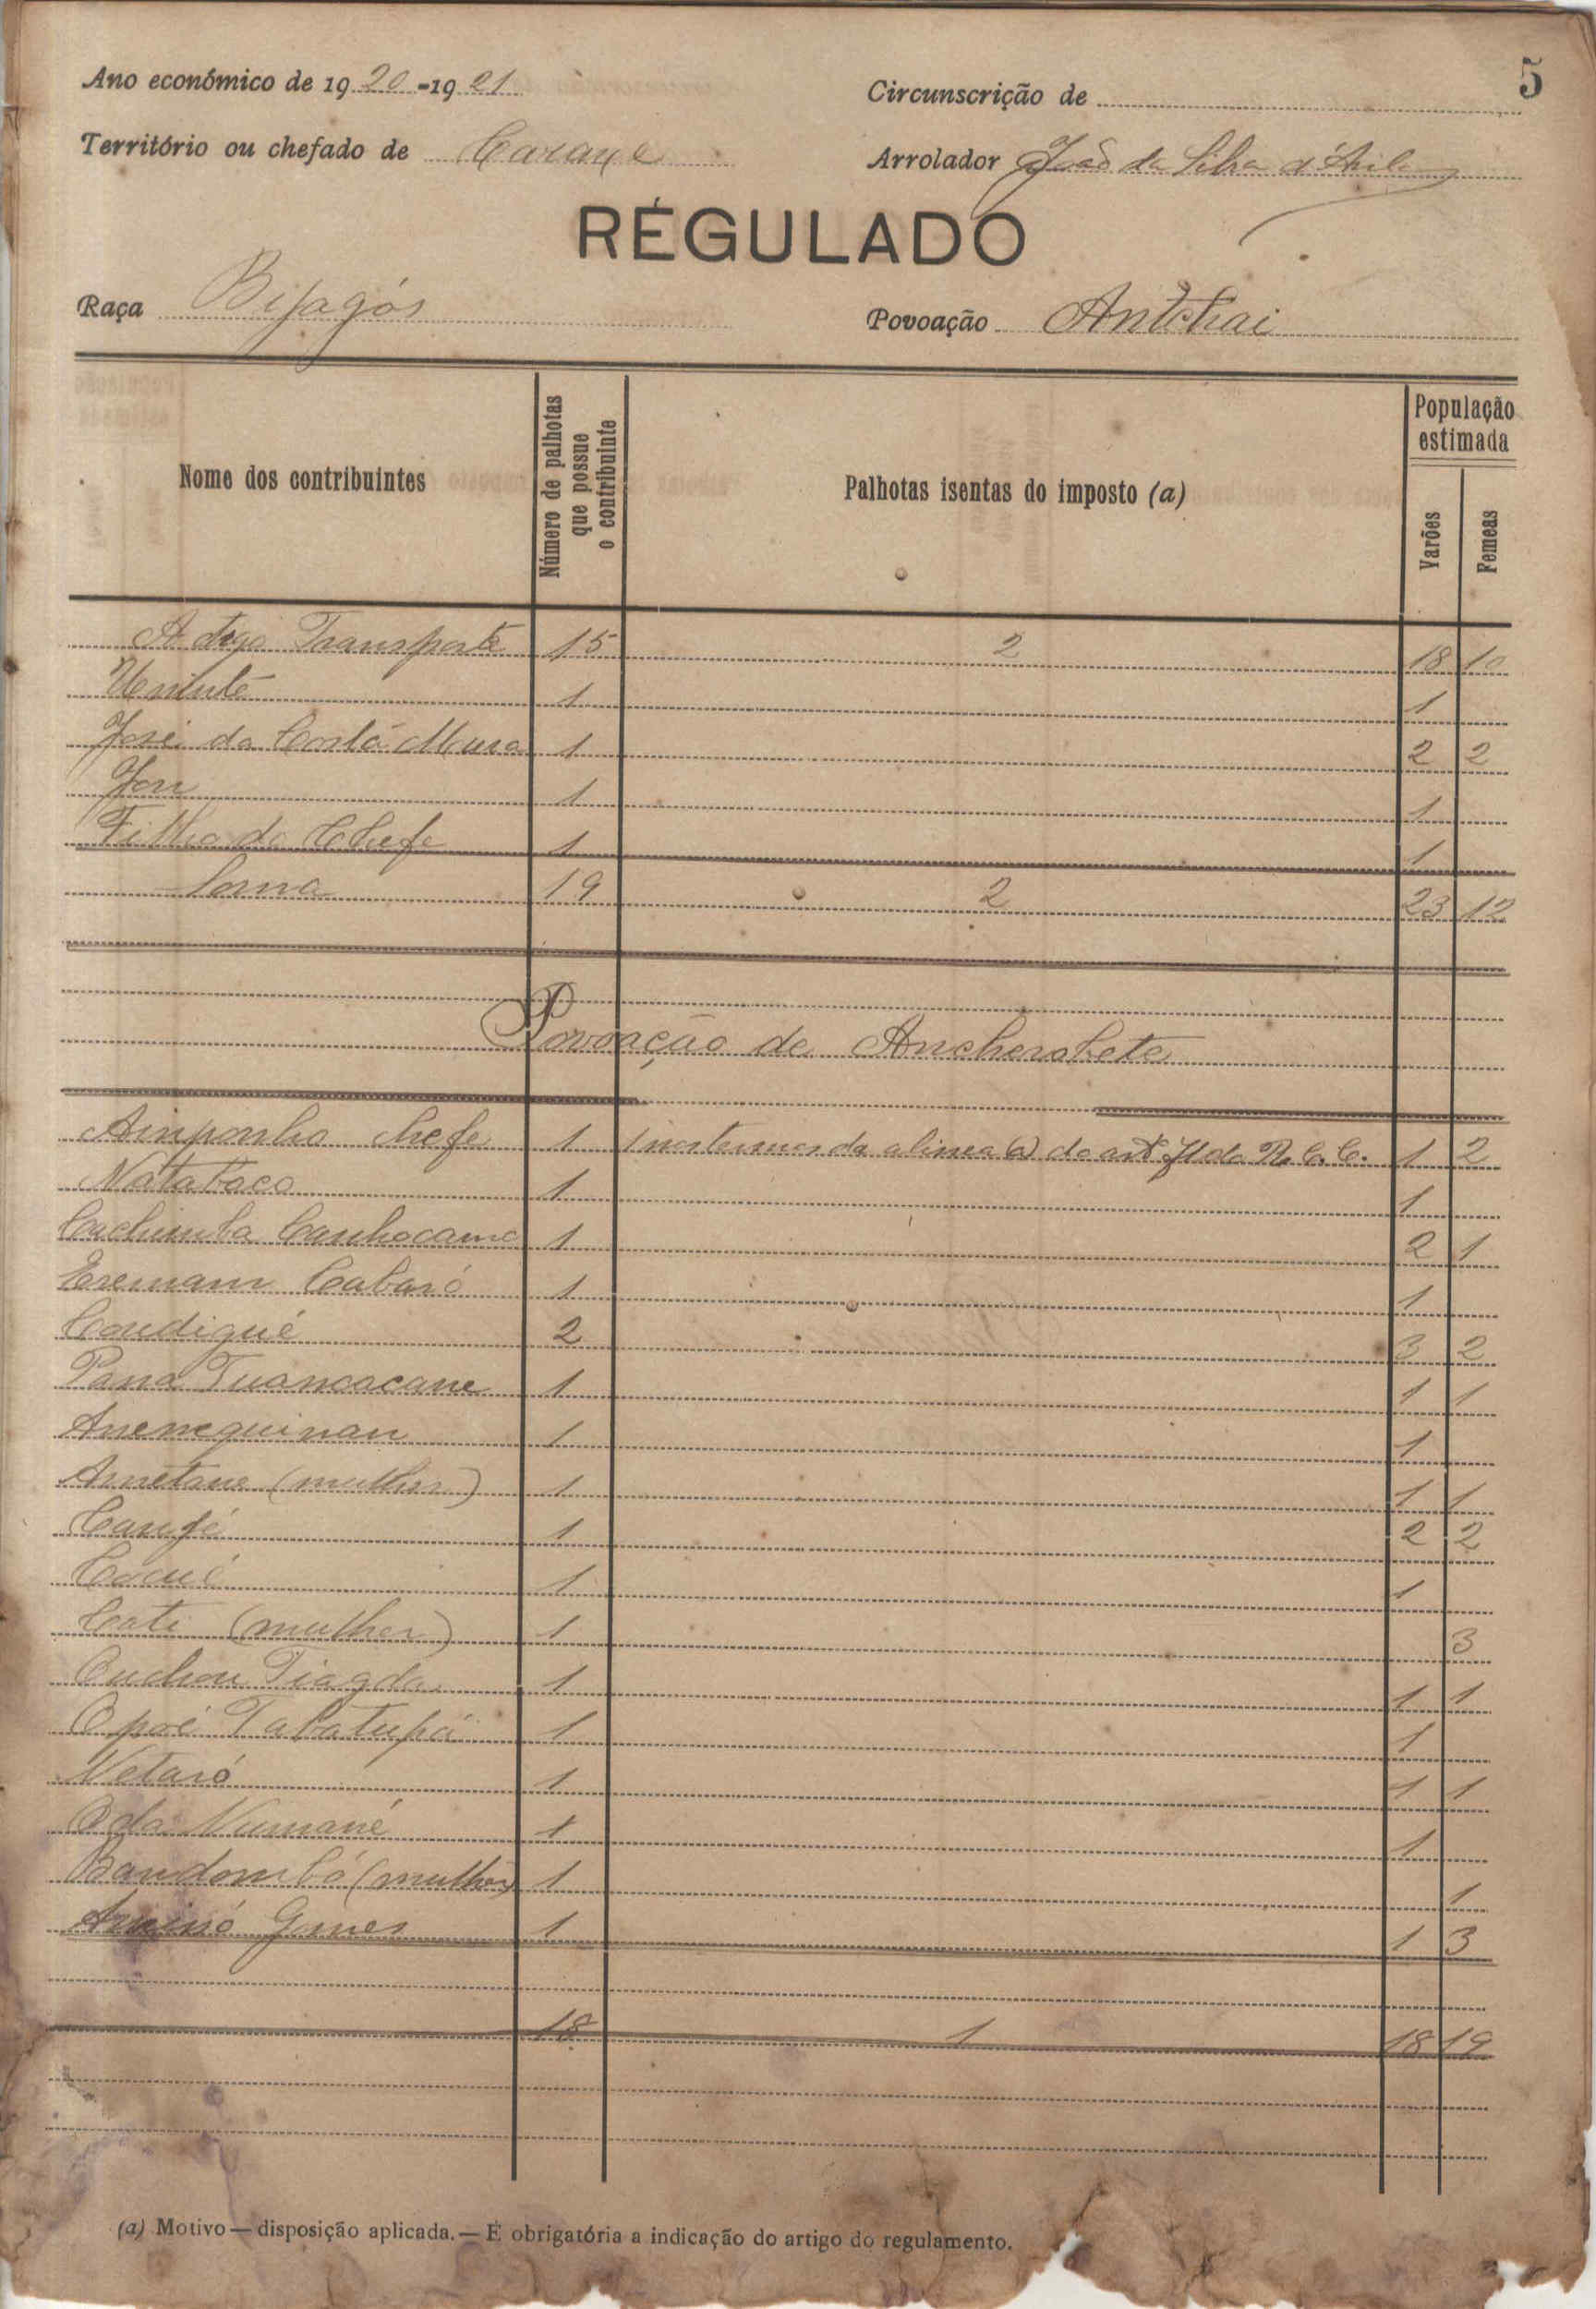 5
Ano económico de 1920-1921
Circunscrição de
Território ou chefado de Caraxe
Arrolador João da Silva d'Avila
RÉGULADO
Raça Bijagós
Povoação Antchai
Nome dos contribuintes
Número de palhotas que possue o contribuinte
Palhotas isentas do imposto (a)
População estimada
Varões
Femeas
Transporte 15 2 18 10
1 1
José da Costa Moura 1 2 2
1 1
Filho do Chefe 1 1
Soma 19 2 23 12
Povoação de Ancherobete
Ainponho chefe 1 1 nos termos da alinea a) do art. do R. C. C. 1 2
Natabaco 1 1
Cachimba Canhocamo 1 2 1
Eremam Cabaró 1 1
Condigué 2 3 2
Pana Tuancacane 1 1 1
Anenequinan 1 1
Annetane (mulher) 1 1 1
Canfé 1 2 2
1 1
Cati (mulher) 1 3
Ouchou 1 1 1
Opoé Tabatupá 1 1
Netaró 1 1 1
Oda Numané 1 1
Bandombó (mulher) 1 1
Gomes 1 1 3
18 1 18 19
(a) Motivo — disposição aplicada. — É obrigatória a indicação do artigo do regulamento.